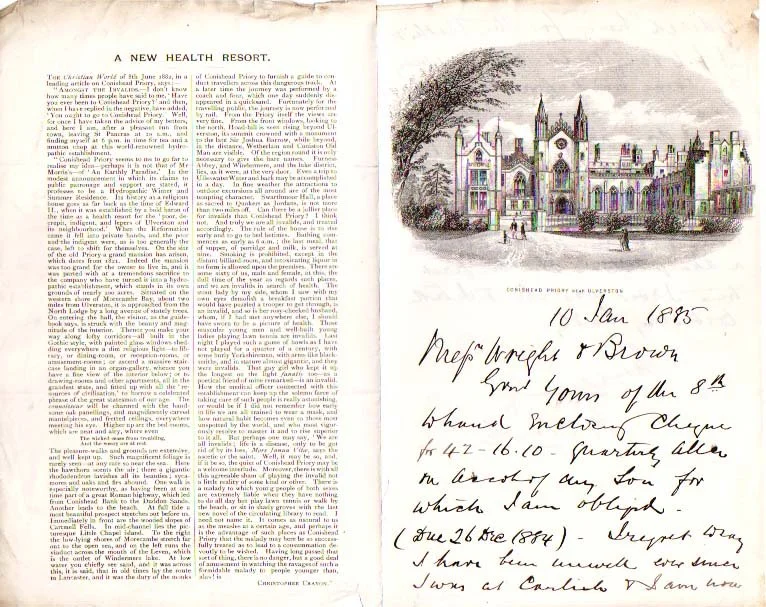 A NEW HEALTH RESORT.
THE Christian World of 8th June 1882, in a
leading article on Conishead Priory, says:—
"AMONGST THE INVALIDS.—I don't know
how many times people have said to me, 'Have
you ever been to Conishead Priory?' and then,
when I have replied in the negative, have added,
'You ought to go to Conishead Priory.' Well,
for once I have taken the advice of my betters,
and here I am, after a pleasant run from
town, leaving St Pancras at 10 a.m., and
finding myself at 6 p.m. in time for tea and a
mutton chop at this world-renowned hydro-
pathic establishment.
"Conishead Priory seems to me to go far to
realise my idea—perhaps it is not that of Mr
Morris's—of 'An Earthly Paradise.' In the
modest announcement in which its claims to
public patronage and support are stated, it
professes to be a Hydropathic Winter and
Summer Residence. Its history as a religious
house goes as far back as the time of Edward
II., when it was established by a bold baron of
the time as a health resort for the 'poor, de-
crepit, indigent, and lepers of Ulverston and
its neighbourhood.' When the Reformation
came it fell into private hands, and the poor
and the indigent were, as is too generally the
case, left to shift for themselves. On the site
of the old Priory a grand mansion has arisen,
which dates from 1821. Indeed the mansion
was too grand for the owner to live in, and it
was parted with at a tremendous sacrifice to
the company who have turned it into a hydro-
pathic establishment, which stands in its own
grounds of nearly 200 acres. Situated on the
western shore of Morecambe Bay, about two
miles from Ulverston, it is approached from the
North Lodge by a long avenue of stately trees.
On entering the hall, the visitor, as the guide-
book says, is struck with the beauty and mag-
nitude of the interior. Thence you make your
way along lofty corridors—all built in the
Gothic style, with painted glass windows shed-
ding everywhere a dim religious light—to lib-
rary, or dining-room, or reception-rooms, or
amusement-rooms; or ascend a massive stair-
case landing in an organ-gallery, whence you
have a fine view of the interior below; or to
drawing-rooms and other apartments, all in the
grandest state, and fitted up with all the 're-
sources of civilisation,' to borrow a celebrated
phrase of the great statesman of our age. The
connoisseur will be charmed with the hand-
some oak panellings, and magnificently carved
mantelpieces, and fretted ceilings, everywhere
meeting his eye. Higher up are the bed-rooms,
which are neat and airy, where even
The wicked cease from troubling,
And the weary are at rest.
The pleasure-walks and grounds are extensive,
and well kept up. Such magnificent foliage is
rarely seen—at any rate so near the sea. Here
the hawthorn scents the air; there a gigantic
rhododendron invites all its beauties; syca-
mores and oaks and firs abound. One walk is
especially noteworthy, as having been at one
time part of a great Roman highway, which led
from Conishead Bank to the Duddon Sands.
Another leads to the beach. At full tide a
most beautiful prospect stretches out before us.
Immediately in front are the wooded slopes of
Cartmell Fells. In mid-channel lies the pic-
turesque Little Chapel Island. To the right
the low-lying shores of Morecambe stretch far
out to the open sea, and on the left runs the
viaduct across the mouth of the Leven, which
is the outlet of Windermere lake. At low
water you chiefly see sand, and it was across
this, it is said, that in old times lay the route
to Lancaster, and it was the duty of the monks
of Conishead Priory to furnish a guide to con-
duct travellers across this dangerous track. At
a later time the journey was performed by a
coach and four, which one day suddenly dis-
appeared in a quicksand. Fortunately for the
travelling public, the journey is now performed
by rail. From the Priory itself the views are
very fine. From the front windows, looking to
the north, Hoad-hill is seen rising beyond Ul-
verston, its summit crowned with a monument
to the late Sir Joshua Barrow, while beyond,
in the distance, Wetherlam and Coniston Old
Man are visible. Of the region round it is only
necessary to give the bare names. Furness
Abbey, and Windermere, and the lake district,
lies, as it were, at the very door. Even a trip to
Ulleswater Water and back may be accomplished
in a day. In fine weather the attractions to
outdoor excursions all around are of the most
tempting character. Swarthmoor Hall, a place
as sacred to Quakers as Jordans, is not more
than two miles off. Can there be a jollier place
for invalids than Conishead Priory? I think
not. And truly we are all invalids, and treated
accordingly. The rule of the house is to rise
early and to go to bed betimes. Bathing com-
mences as early as 6 a.m.; the last meal, that
of supper, of porridge and milk, is served at
nine. Smoking is prohibited, except in the
distant billiard-room, and intoxicating liquor in
no form is allowed upon the premises. There are
some sixty of us, male and female, at this, the
dull time of the year as regards such places,
and we are invalids in search of health. The
stout lady by my side, whom I saw with my
own eyes demolish a breakfast portion that
would have puzzled a trooper to get through, is
an invalid, and so is her rosy-cheeked husband,
whom, if I had met anywhere else, I should
have sworn to be a picture of health. Those
muscular young men and well-built young
ladies playing lawn tennis are invalids. Last
night I played such a game of bowls as I have
not played for a quarter of a century, with
some burly Yorkshiremen, with arms like black-
smiths, and in stature almost gigantic, and they
were invalids. That guy girl who kept it up
the longest on the light fanatic toe—as a
poetical friend of mine remarked—is an invalid.
How the medical officer connected with this
establishment can keep up the solemn farce of
taking care of such people is really astonishing,
or would be if I did not remember how early
in life we are all trained to wear a mask, and
how natural habit becomes even to those most
unspotted by the world, and who most vigor-
ously resolve to conquer it and to rise superior
to it all. But perhaps one may say, 'We are
all invalids; life is a disease, only to be got
rid of by its loss, Mors Janua Vitæ, says the
ascetic or the saint. Well, it may be so, and,
if it be so, the quiet of Conishead Priory may be
a welcome interlude. Moreover, there is with all
this agreeable sham of playing the invalid not
a little reality of some kind or other. There is
a malady to which young people of both sexes
are extremely liable when they have nothing
to do all day but play lawn tennis or walk by
the beach, or sit in shady groves with the last
new novel of the circulating library to read. I
need not name it. It comes as natural to us
as the measles at a certain age, and perhaps it
is the advantage of such places as Conishead
Priory that the malady may here be so success-
fully treated as to lead to a consummation de-
voutly to be wished. Having long passed that
sort of thing, there is no danger, but a good deal
of amusement in watching the ravages of such a
formidable malady to people younger than,
alas! is
CHRISTOPHER CRAYON."
CONISHEAD PRIORY NEAR ULVERSTON
10 Jan 1885
Messrs Wright & Brown
Gent Yours of the 8th
to hand Enclosing Cheque
for 42-16.10 - Quarterly
on acct of my Son for
which I am obliged.
(Due 26 Dec 1884) - I regret to say
I have been unwell ever since
I was at Carlisle & I am now